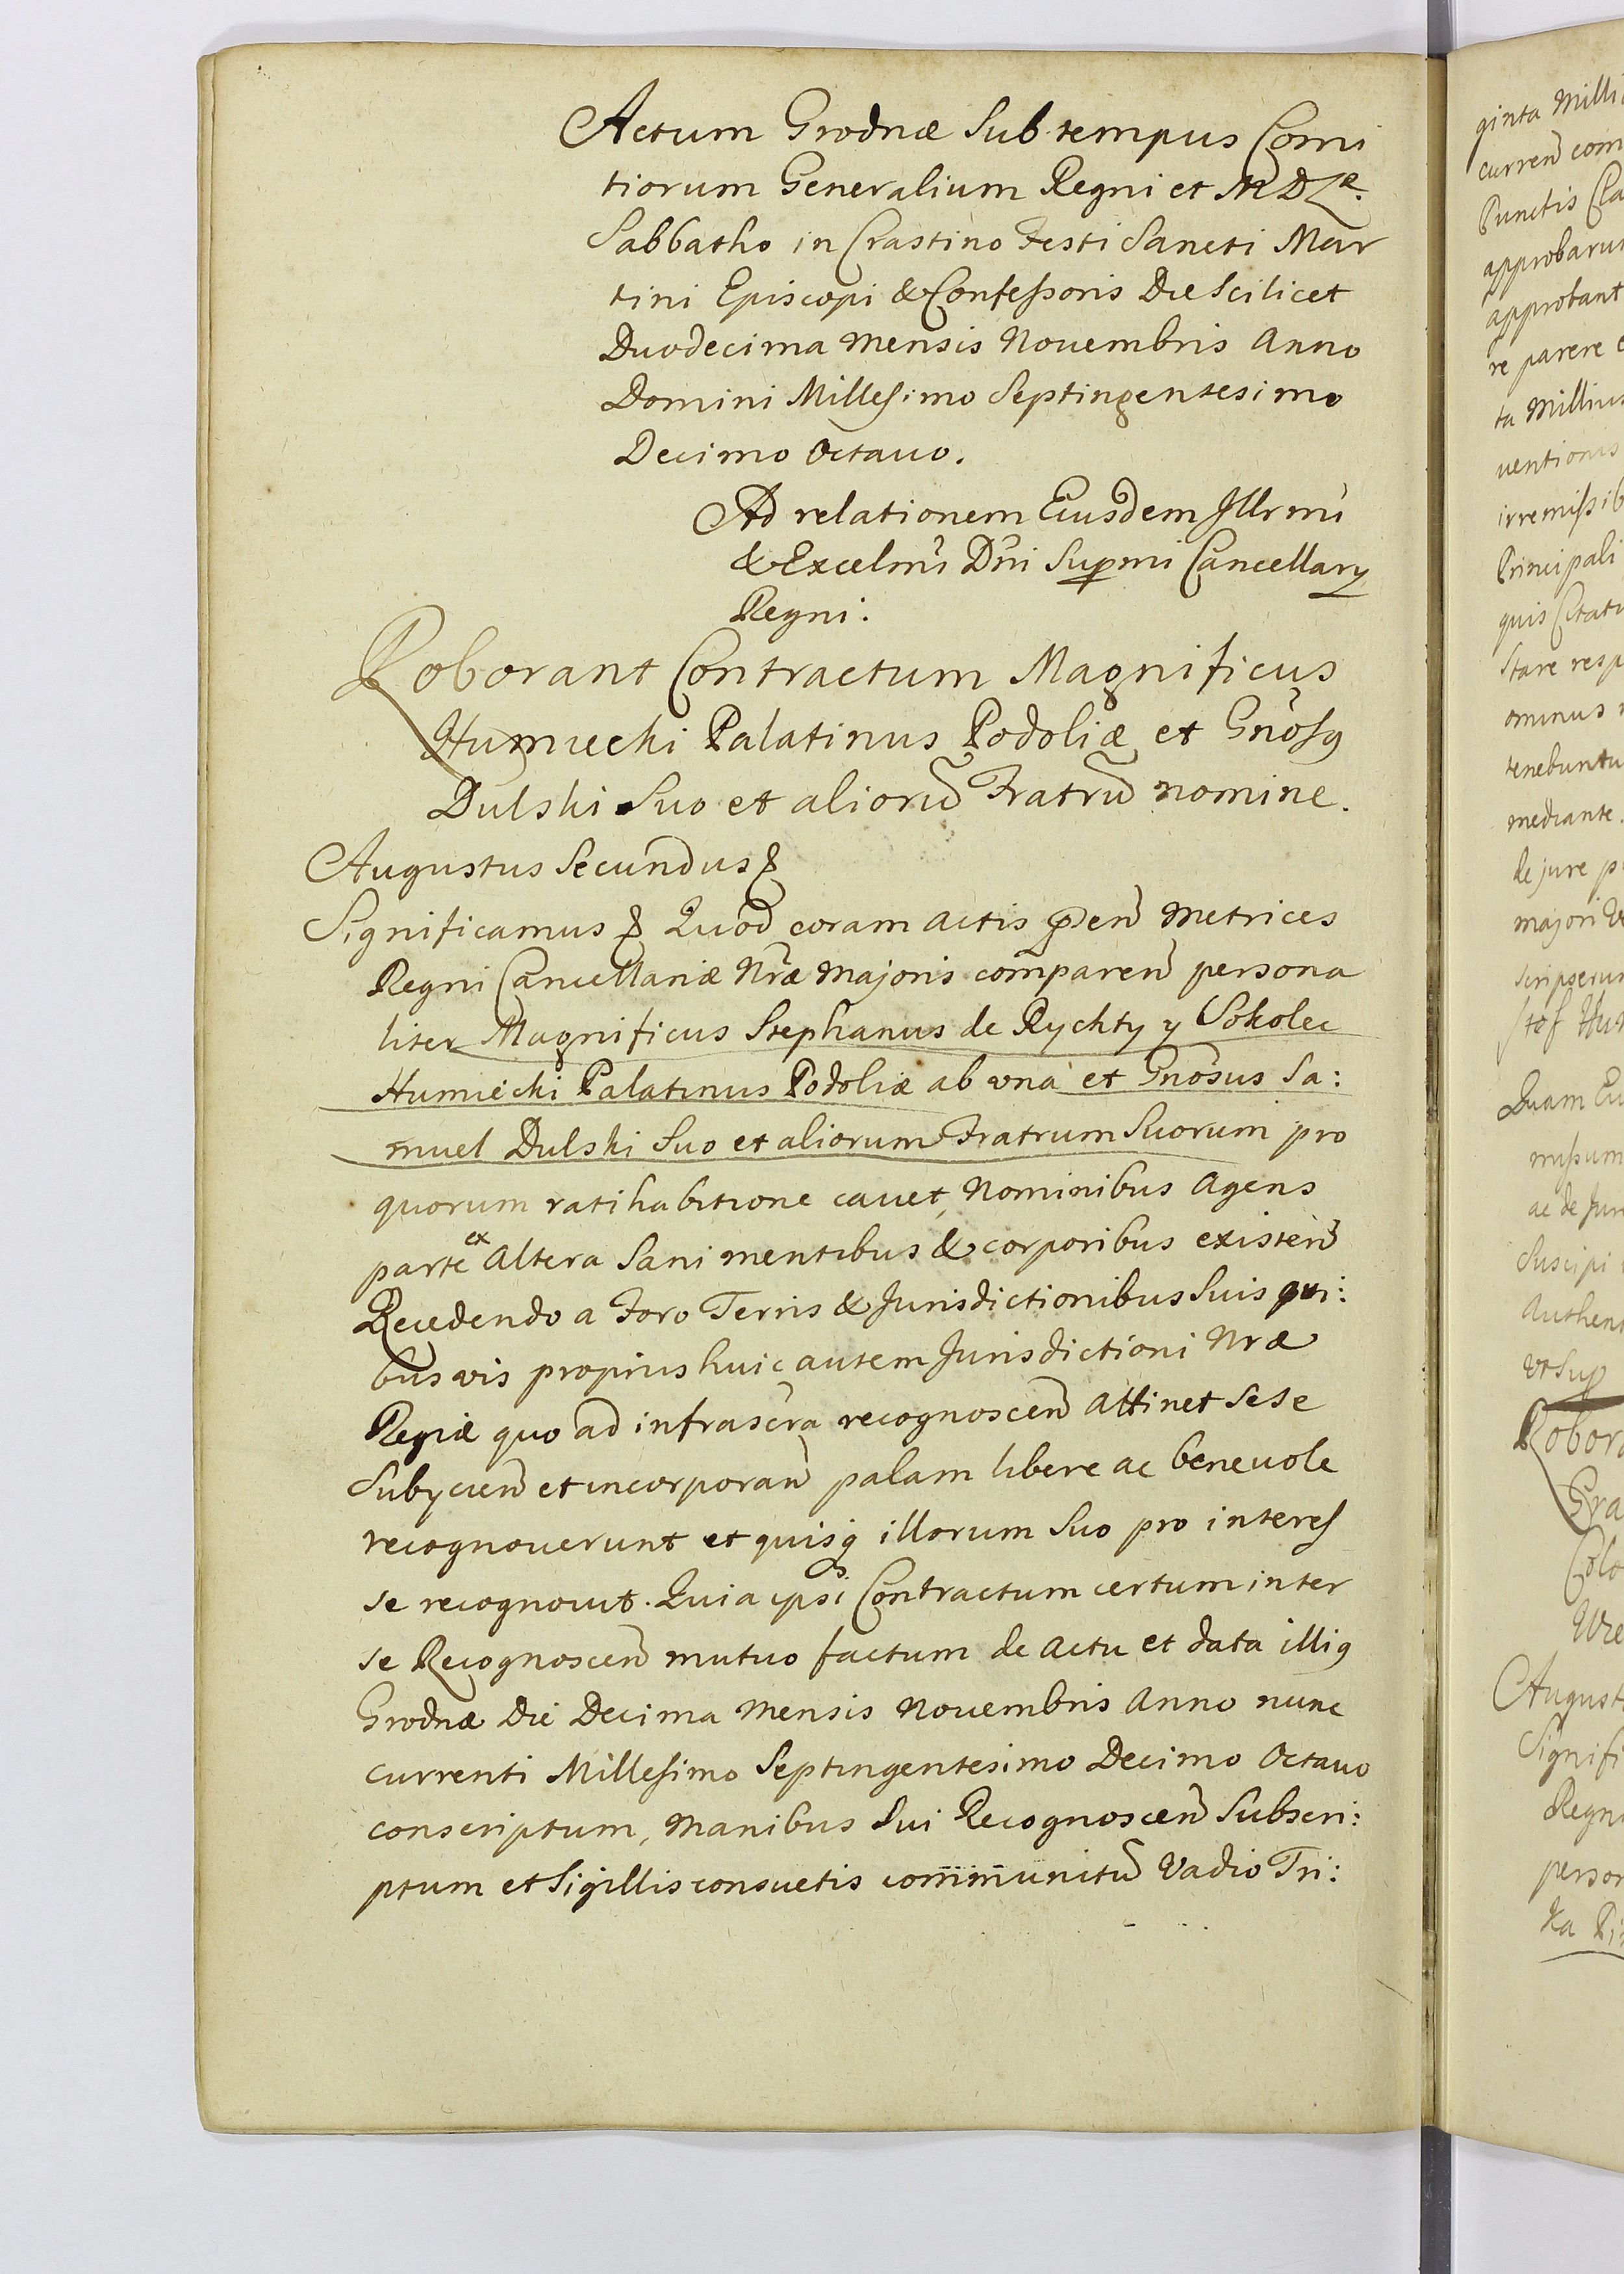 Actum Grodnæ Sub tempus Comi
tiorum Generalium Regni et M D Læ.
Sabbatho in Crastino Festi Sancti Mar
tini Episcopi & Confessoris Die Scilicet
Duodecima Mensis Nouembris Anno
Domini Millesimo Septingentesimo
Decimo Octauo.
Ad relationem Eiusdem Illrmi
& Excelmi Dni Supmi Cancellary
Regni:
Roborant Contractum Magnificus
Humiecki Palatinus Podoliæ et Gnosq
Dulski Suo et aliorũ Fratrũ nomine.
Augustus Secundus &
Significamus & Quod coram Actis pñ Metrices
Regni Cancellariæ Nræ Majoris comparen persona
liter Magnificus Stephanus de Rychty y Sokolec
Humiecki Palatinus Podoliæ ab vna et Gnosus Sa:
muel Dulski Suo et aliorum Fratrum Suorum pro
quorum ratihabitione cauet, Nominibus Agens
parte ex Altera Sani mentibus & corporibus existen
Recedendo a Foro Terris & Jurisdictionibus Suis qui:
bus vis proprius huic autem Jurisdictioni Nræ
Regiæ quo ad infrascra recognoscen Attinet Sese
Subycien et incorporan palam libere ac beneuole
recognouerunt et quisq illorum Suo pro interes
se recognouit. Quia ipsi Contractum certum inter
se Recognoscen mutuo factum de Actu et data illiq
Grodnæ Die Decima Mensis Nouembris Anno nunc
currenti Millesimo Septingentesimo Decimo Octauo
conscriptum, Manibus Sui Recognoscen Subscri:
ptum et Sigillis consuetis communitũ Vadio Tri:
ginta Milli
curren com
Punctis Cla
approbarun
approbant
re parere e
ta Millium
uentionis
irremissib
Principali
quis Citatu
Stare resp
ominus n
tenebuntu
mediante.
de jure p
majori
scripserun
Quam Eu
missum
ac de Jur
Suscipi
Authen
vt Sup
Robora
Gra
Colo
Augusti
Signifi
Regni
person